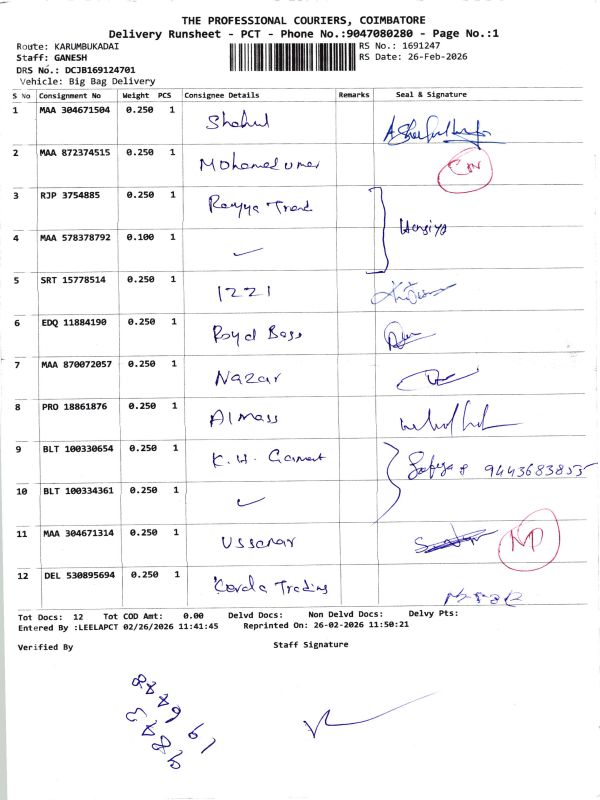 THE PROFESSIONAL COURIERS, COIMBATORE
Delivery Runsheet - PCT - Phone No.:9047080280 - Page No.:1
Route: KARUMBUKADAI RS No.: 1691247
Staff: GANESH RS Date: 26-Feb-2026
DRS No.: DCJB169124701
Vehicle: Big Bag Delivery
S No Consignment No Weight PCS Consignee Details Remarks Seal & Signature
1 MAA 304671504 0.250 1 Shahul
2 MAA 872374515 0.250 1 Mohamed umar
3 RJP 3754885 0.250 1 Trend
4 MAA 578378792 0.100 1
5 SRT 15778514 0.250 1 1221
6 EDQ 11884190 0.250 1 Royal Bags
7 MAA 870072057 0.250 1 Nazar
8 PRO 18861876 0.250 1 Almass
9 BLT 100330654 0.250 1 K.H. Garment 9443683855
10 BLT 100334361 0.250 1
11 MAA 304671314 0.250 1
12 DEL 530895694 0.250 1 Trading
Tot Docs: 12 Tot COD Amt: 0.00 Delvd Docs: Non Delvd Docs: Delvy Pts:
Entered By :LEELAPCT 02/26/2026 11:41:45 Reprinted On: 26-02-2026 11:50:21
Verified By Staff Signature